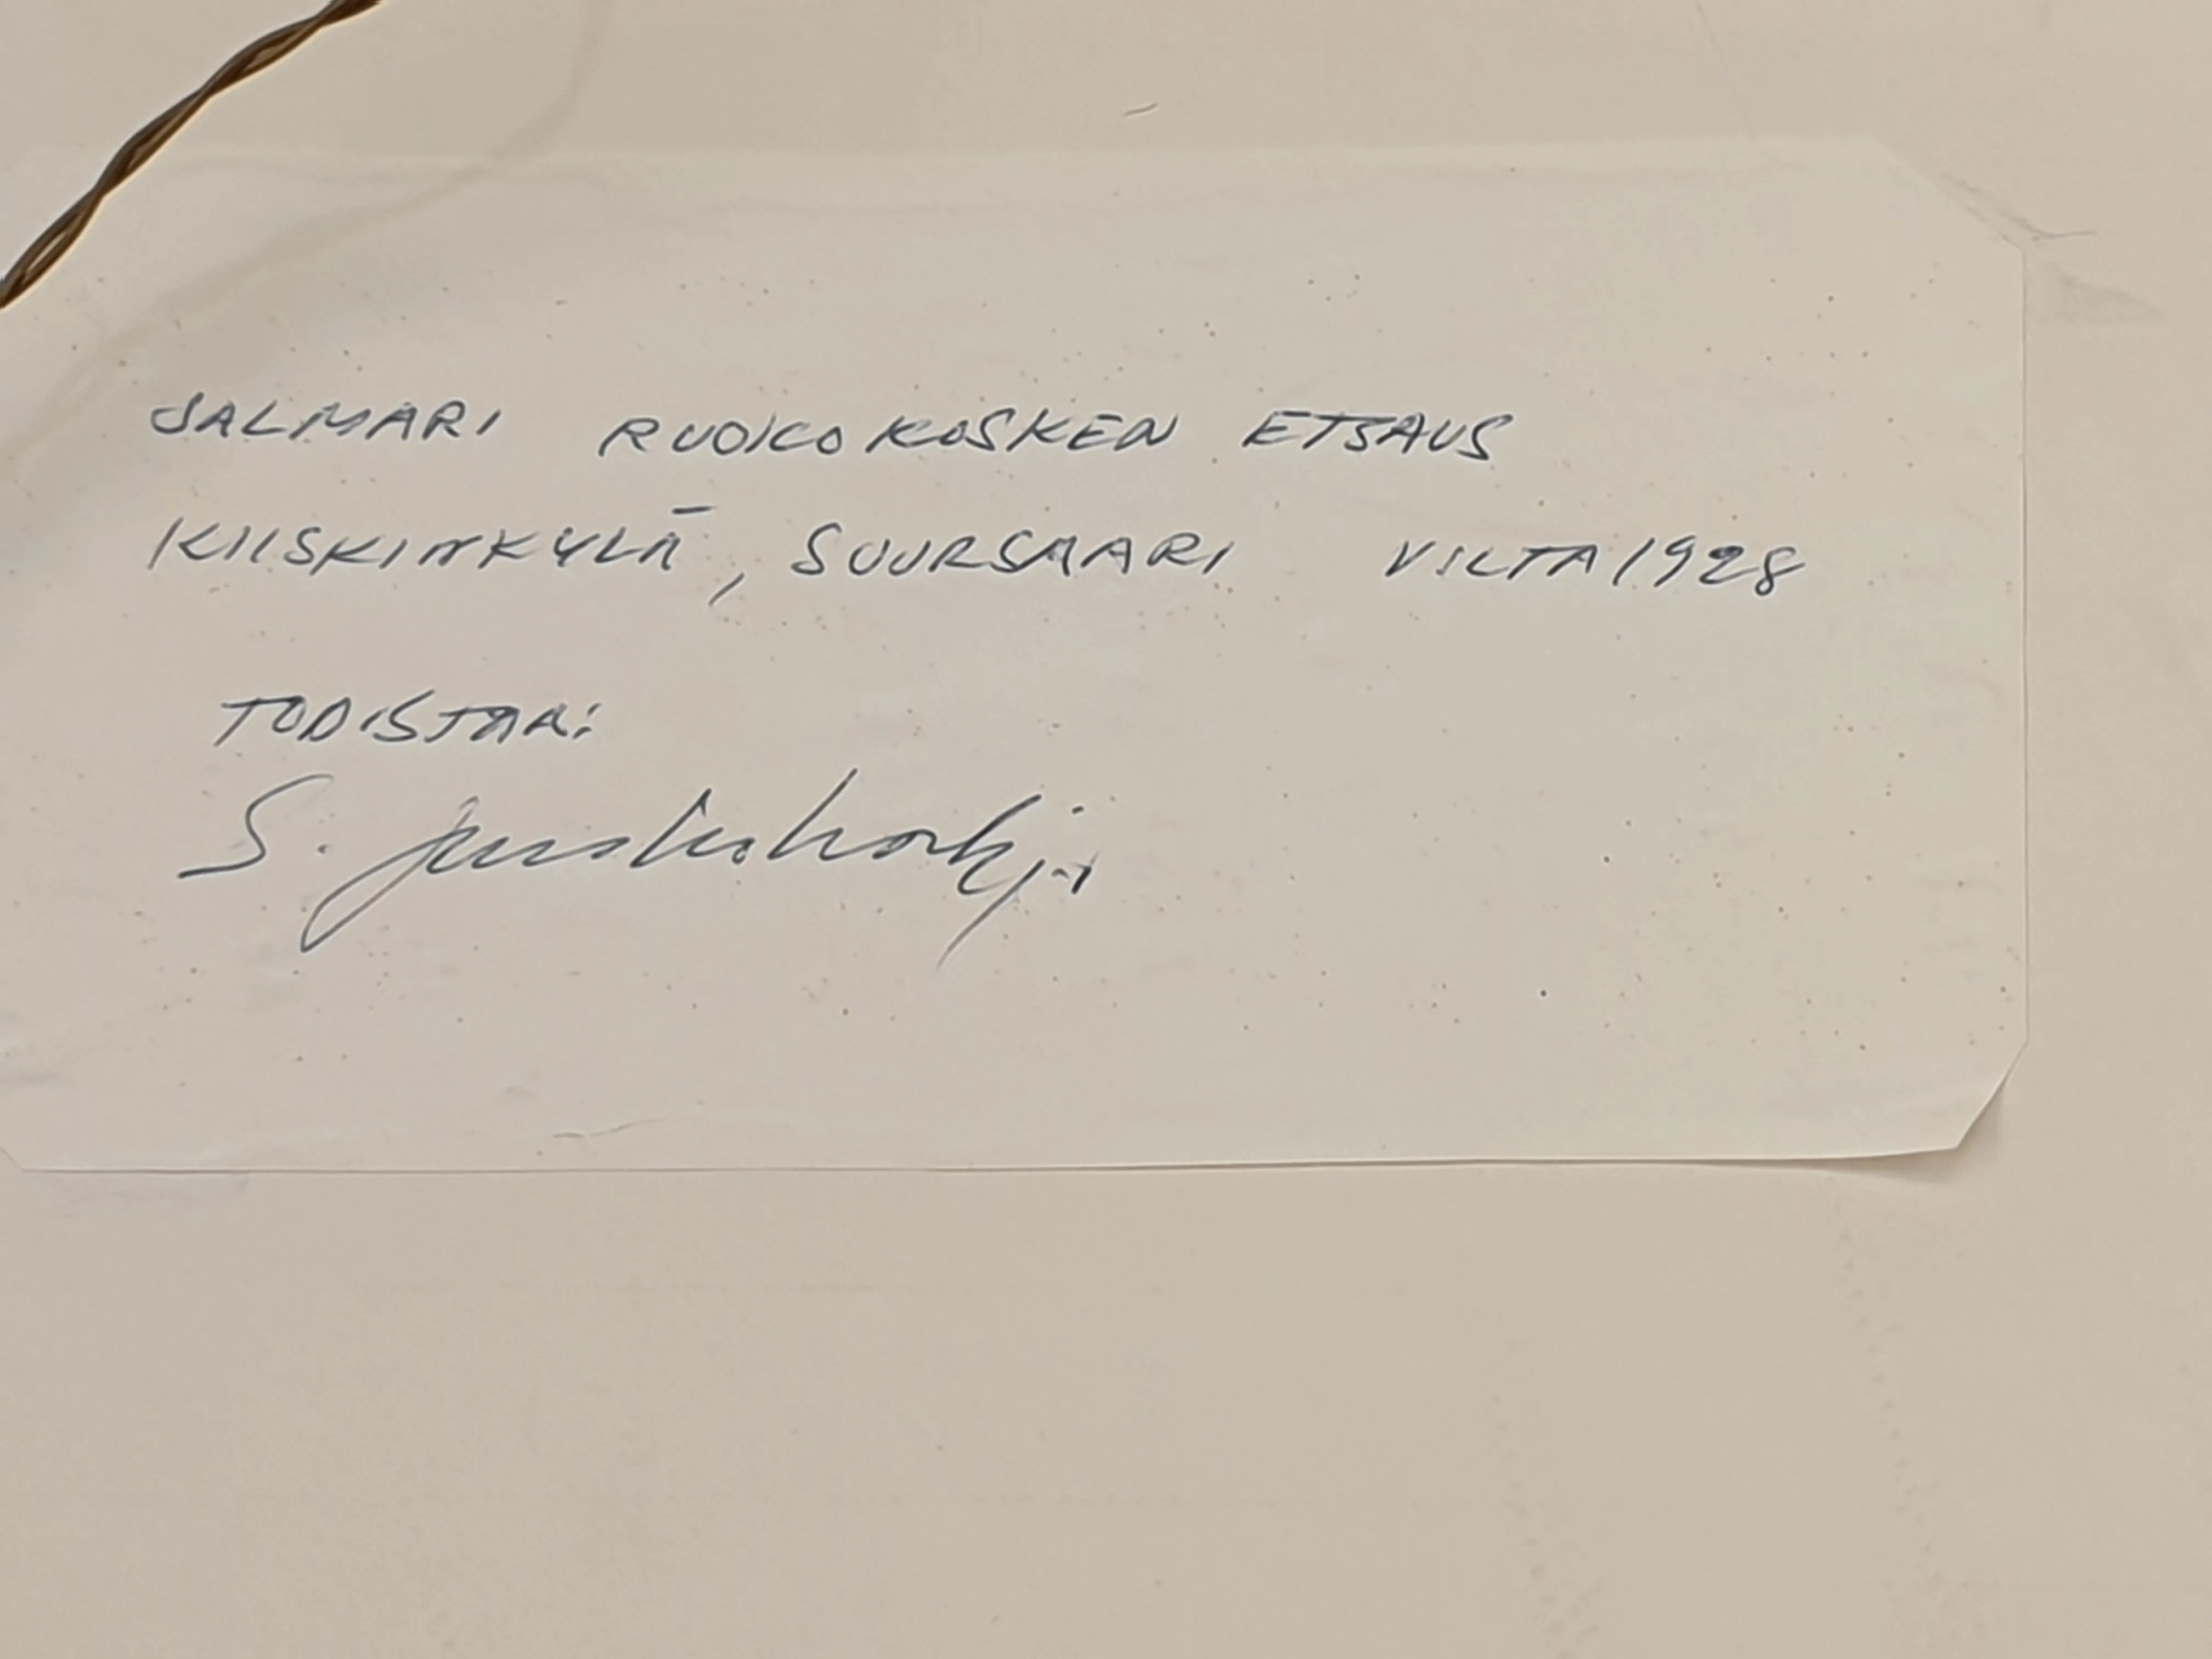 SALMARI RUOKOKOSKEN ETSAUS
KIISKINKYLÄ, SUURSAARI VILTA 1928
TODISTAA:
S.